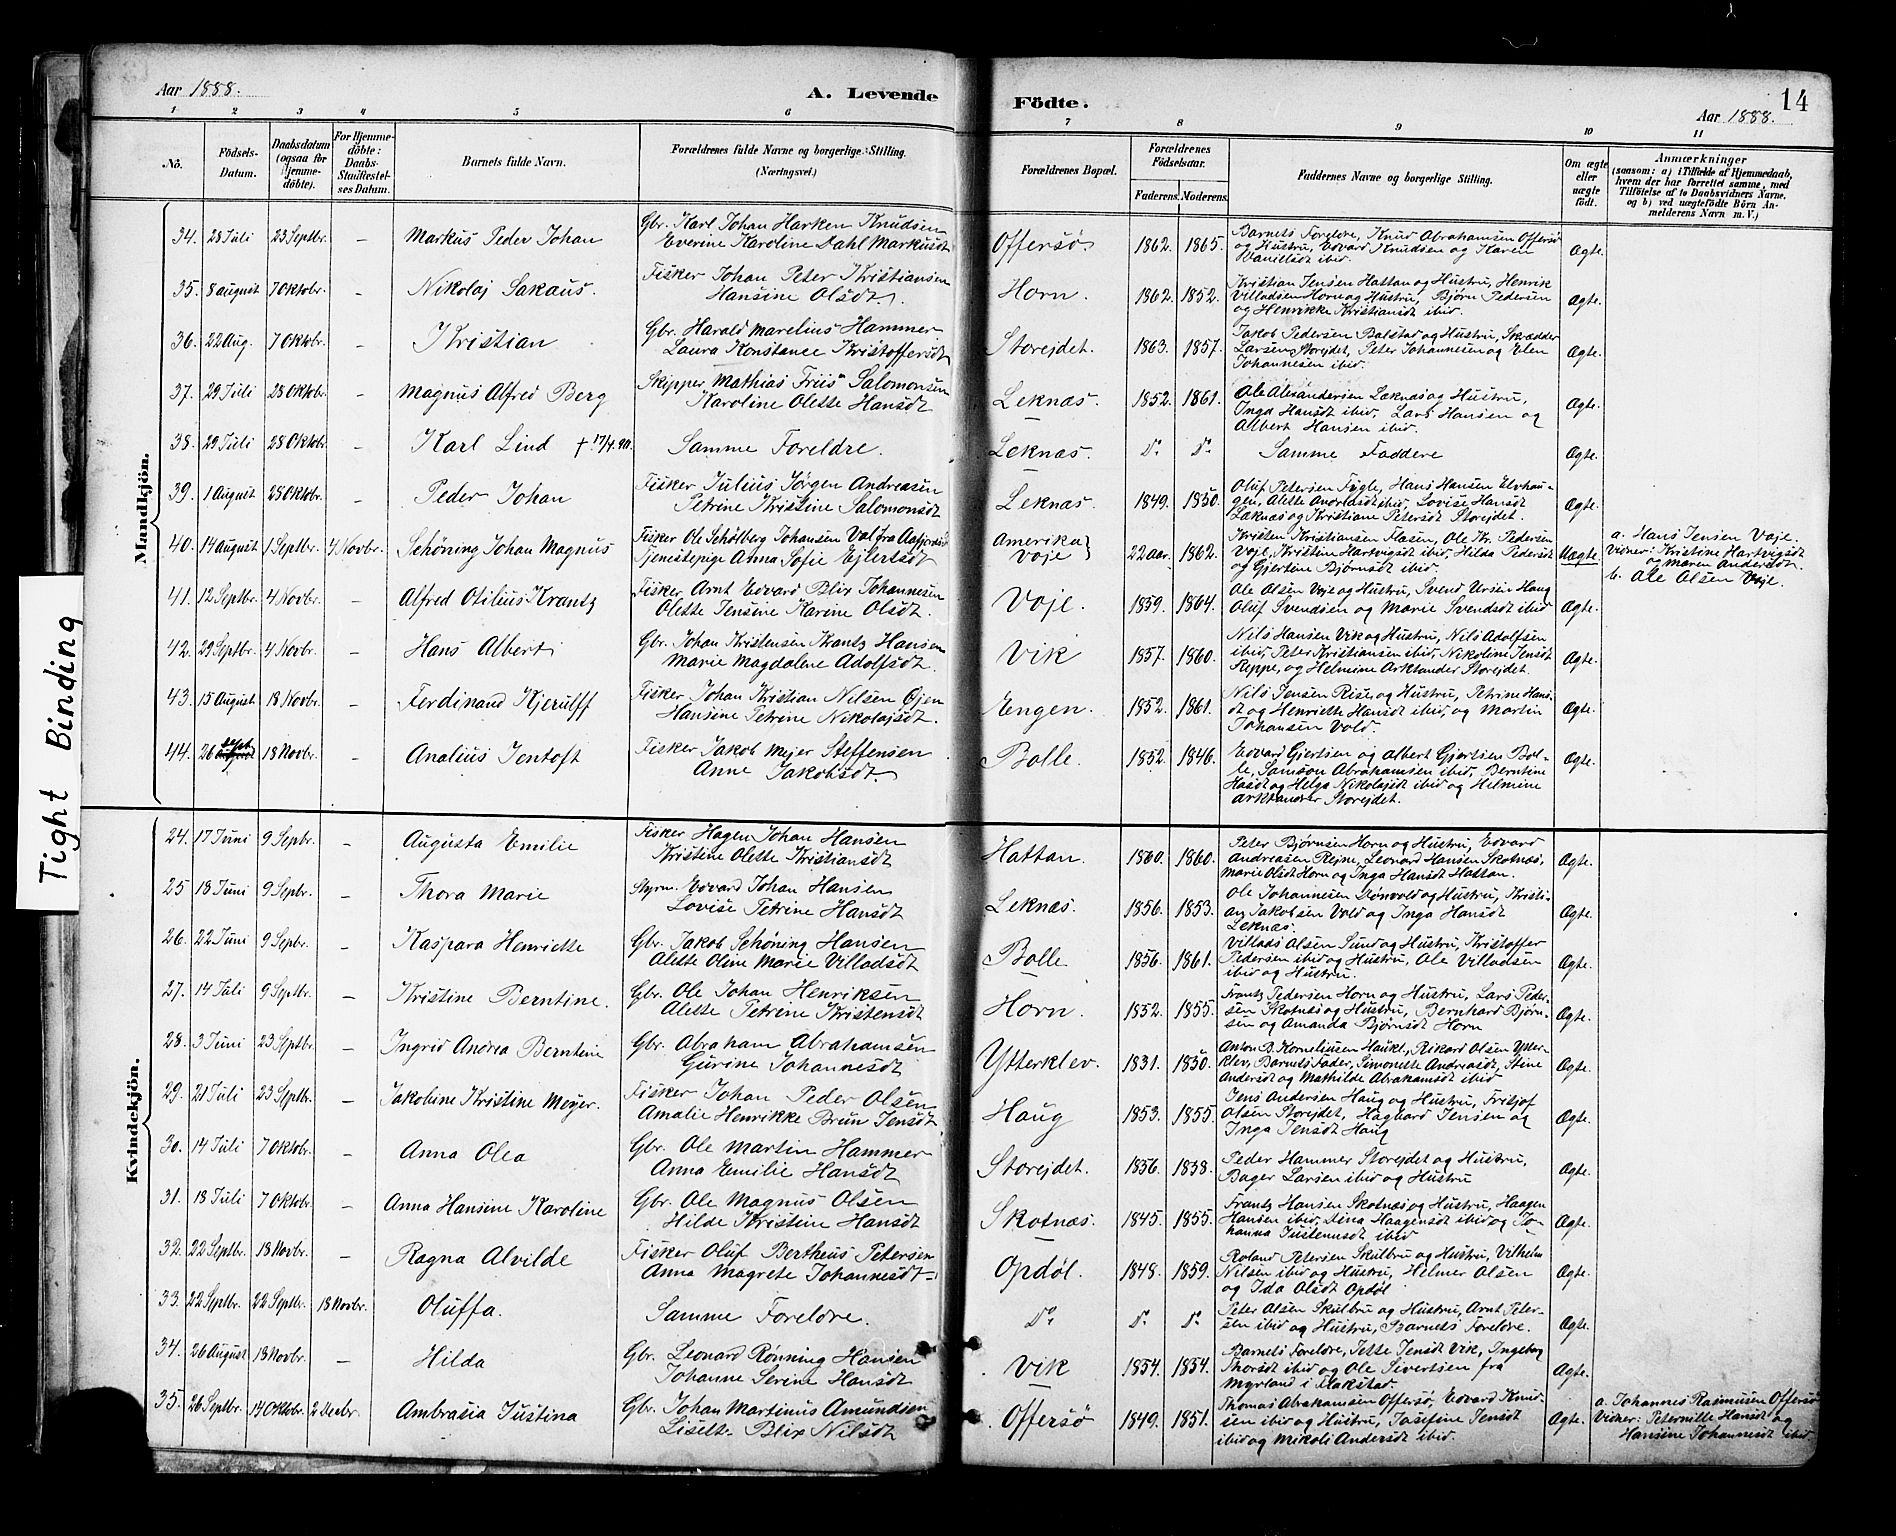 Aar 1888.
A. Levende
Födte.
14
Aar 1888.
1 2 3 4 5 6 7 8 9 10 11
No.
Födsels-Datum.
Daabsdatum (ogsaa for Hjemmedöbte).
For Hjemmedöbte: Daabs-Stadfæstelses Datum.
Barnets fulde Navn.
Forældrenes fulde Navne og borgerlige Stilling. (Næringsvei.)
Forældrenes Bopæl.
Forældrenes Födselsaar.
Faderens. Moderens.
Faddernes Navne og borgerlige Stilling.
Om ægte eller uægte født.
Anmærkninger
(saasom: a) i Tilfælde af Hjemmedaab, hvem der har forrettet samme, med Tilföielse af to Daabsvidners Navne, og b) ved uægtefödte Börn Anmelderens Navn m. V.)
Tight Binding
Mandkjön.
34. 28 Juli 23 Septbr. – Markus Peder Johan
Gbr. Karl Johan Harken Knudsen
Everine Karoline Dahl Markusdt
Offersø. 1862. 1865.
Barnets Foreldre, Knud Abrahamsen Offersø
og Hustru, Edvard Knudsen og Karen
Danielsdt ibid.
Ægte.
35. 8 August 7 Oktobr. – Nikolaj Sakaus.
Fisker Johan Peter Kristiansen
Hansine Olsdt.
Horn. 1862. 1852.
Kristian Jensen Hattan og Hustru, Henrik
Villadsen Horn og Hustru, Bjørn Pedersen
og Henrikke Kristiansdt ibid.
Ægte.
36. 22 Aug. 7 Oktobr. – Kristian
Gbr. Harald Marelius Hammer
Laura Konstance Kristoffersdt
Storejdet. 1863. 1857.
Jakob Pedersen Balstad og Hustru, Skrædder
Larsen Storejdet, Peter Johannesen og Elen
Johannesen ibid.
Ægte.
37. 29 Juli 28 Oktobr. – Magnus Alfred Berg
Skipper Mathias Friis Salomonsen
Karoline Olette Hansdt
Leknæs. 1852. 1861.
Ole Alexandersen Læknæs og Hustru,
Inga Hansdt ibid, Lars Hansen og
Albert Hansen ibid.
Ægte.
38. 29 Juli 28 Oktobr. – Karl Lind † 17/4.90.
Samme Foreldre.
Leknæs. do do
Samme Faddere
Ægte.
39. 1 August 28 Oktobr. – Peder Johan
Fisker Julius Jørgen Andreasen
Petrine Kristine Salomonsdt
Leknæs. 1849. 1850.
Oluf Petersen Fygle, Hans Hansen Elvhau-
gen, Alette Andreasdt ibid, Lovise Hansdt
Læknæs og Kristiane Petersdt Storejdet.
Ægte.
40. 14 August 1 Septbr. 4 Novbr. Schøning Johan Magnus
Fisker Ole Schølberg Johansen Val fra
Tjenestepige Anna Sofie Ejlertsdt
Amerika
Voje } 22 aar. 1862.
Kristen Kristiansen Haŝen, Ole Kr. Pedersen
Voje, Kristine Hartvigsdt ibid, Hilda Pedersdt
og Gjertine Bjørnsdt ibid.
Uægte.
a. Hans Jensen Voje.
Vidner: Kristine Hartvigsdt
og Maren Andersdt.
b. Ole Olsen Voje.
41. 12 Septbr. 4 Novbr. – Alfred Otilius Krantz
Fisker Arnt Edvard Blix Johannesen
Olette Jensine Karine Olsdt.
Voje. 1859. 1864.
Ole Olsen Voje og Hustru, Svend Ursin Haug
Oluf Svendsen og Marie Svendsdt ibid
Ægte.
42. 29 Septbr. 4 Novbr. – Hans Albert
Gbr. Johan Kristensen Krantz Hansen
Marie Magdalene Adolfsdt.
Vik 1857. 1860.
Nils Hansen Vik og Hustru, Nils Adolfsen
ibid, Peter Kristiansen ibid, Nikoline Jensdt
Reppe, og Helmine Arktander Storejdet.
Ægte.
43. 15 August 18 Novbr. – Ferdinand Kjerulff
Fisker Johan Kristian Nilsen Øjen
Hansine Petrine Nikolajsdt.
Engen. 1852. 1861.
Nils Jensen Rise og Hustru, Petrine Hans-
dt og Henriette Hansdt ibid, og Martin
Johansen Vold.
Ægte.
44. 26 Sept 18 Novbr. – Analius Jentoft
Fisker Jakob Mejer Steffensen
Anne Jakobsdt
Bolle. 1852. 1846.
Edvard Gjertsen og Albert Gjertsen Bol-
le, Samson Abrahamsen ibid, Berntine
Hasdt og Helga Nikolajsdt ibid og Helmine
Arktander Storejdet.
Ægte.
Kvindekjön.
24. 17 Juni 9 Sepbr. – Augusta Emilie
Fisker Hagen Johan Hansen
Kristine Olette Kristiansdt
Hattan. 1860. 1860.
Peter Bjørnsen Horn og Hustru, Edvard
Andreasen Rejne, Leonard Hansen Skotnæs,
Marie Olsdt Horn og Inga Hansdt Hattan.
Ægte.
25 18 Juni 9 Sepbr. – Thora Marie
Styrm. Edvard Johan Hansen
Lovise Petrine Hansdt
Leknæs. 1856. 1853.
Ole Johannesen Sønvold og Hustru, Kristi-
an Jakobsen Vold og Inga Hansdt
Leknæs.
Ægte.
26. 22 Juni 9 Sepbr. – Kaspara Henriette
Gbr. Jakob Schøning Hansen
Alette Oline Marie Villadsdt
Bolle. 1856. 1861.
Villads Olsen Sund og Hustru, Kristoffer
Pedersen ibid og Hustru, Ole Villadsen
ibid og Hustru.
Ægte.
27. 14 Juli 9 Septbr. – Kristine Berntine.
Gbr. Ole Johan Henriksen
Alette Petrine Kristensdt
Horn. 1852. 1855.
Frantz Pedersen Horn og Hustru, Lars Peder-
sen Skotnæs og Hustru, Bernhard Bjørn-
sen og Amanda Bjørnsdt Horn
Ægte.
28. 3 Juni 23 Septbr. – Ingrid Andrea Berntine
Gbr. Abraham Abrahamsen
Gurine Johannesdt
Ytterklev. 1831. 1850.
Anton B. Korneliusen Haukt, Rikard Olsen Ytter-
klev, Barnets Fader, Simonette Andreasdt, Stine
Andersdt og Mathilde Abrahamsdt ibid.
Ægte.
29. 21 Juli 23 Septbr. – Jakobine Kristine Meyer.
Fisker Johan Peder Olsen
Amalie Henrikke Brun Jensdt
Haug 1853. 1855.
Jens Andersen Haug og Hustru, Fritjof
Olsen Storejdet, Haghard Jensen og
Inga Jensdt Haug
Ægte.
30. 14 Juli 7 Oktobr. – Anna Olea
Gbr. Ole Martin Hammer
Anna Emilie Hansdt
Storejdet. 1856. 1858.
Peder Hammer Storejdet og Hustru,
Bager Larsen ibid og Hustru
Ægte.
31. 18 Juli 7 Oktobr. – Anna Hansine Karoline
Gbr. Ole Magnus Olsen
Hilde Kristine Hansdt
Skotnæs. 1845. 1855.
Frantz Hansen Skotnæs og Hustru, Haagen
Hansen ibid, Dina Haagensdt ibid og Jo-
hanna Justennsdt ibid
Ægte.
32. 22 Septbr. 18 Novbr. – Ragna Alvilde
Fisker Oluf Bertheus Petersen
Anna Magrete Johannesdt.
Opdøl. 1848. 1859.
Roland Petersen Skulbru og Hustru, Vilhelm
Nilsen ibid og Hustru, Helmer Olsen
og Ida Olsdt Opdøl
Ægte.
33. 22 Septbr. 22 Septbr. 18 Novbr. Oluffa.
Samme Foreldre.
do do do
Peter Olsen Skulbru og Hustru, Arnt Peter-
sen ibid og Hustru, Barnets Foreldre.
Ægte.
34. 26 August 18 Novbr. – Hilda
Gbr. Leonard Rønning Hansen
Johanne Serine Hansdt
Vik 1854. 1854.
Barnets Foreldre, Jette Jensdt Vik, Ingeborg
Thorsdt ibid og Ole Sivertsen fra
Myrland i Flakstad.
Ægte.
35. 26 Septbr. 14 Oktobr. 2 Decbr. Ambrasia Justina
Gbr. Johan Martinus Amundsen
Liselt. Blix Nilsdt
Offersø 1849. 1851.
Thomas Abrahamsen Offersø, Edvard Knud-
sen ibid og Hustru, Josefine Jensdt
ibid og Mikoli Andersdt ibid.
Ægte.
a. Johannes Rasmusen Offersø
Vidner: Peternille Hansdt og
Hansine Johannesdt ibid